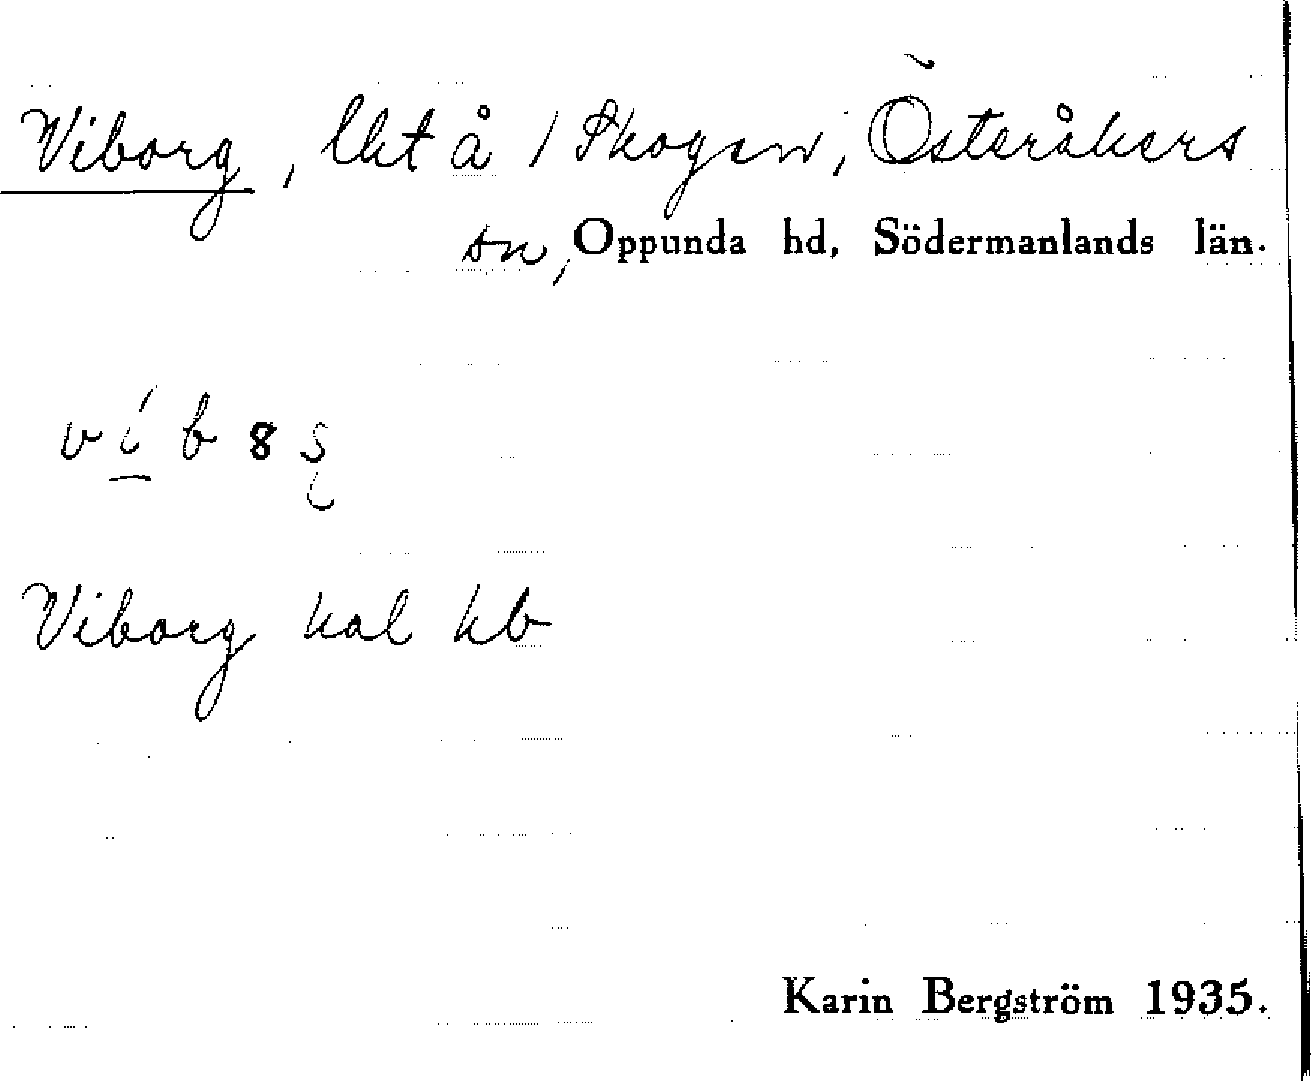 Viborg, lht å 1 Skogen, Österåkers
sn, Oppunda hd, Södermanlands län.
Viborg hal hb
Karin Bergström 1935.